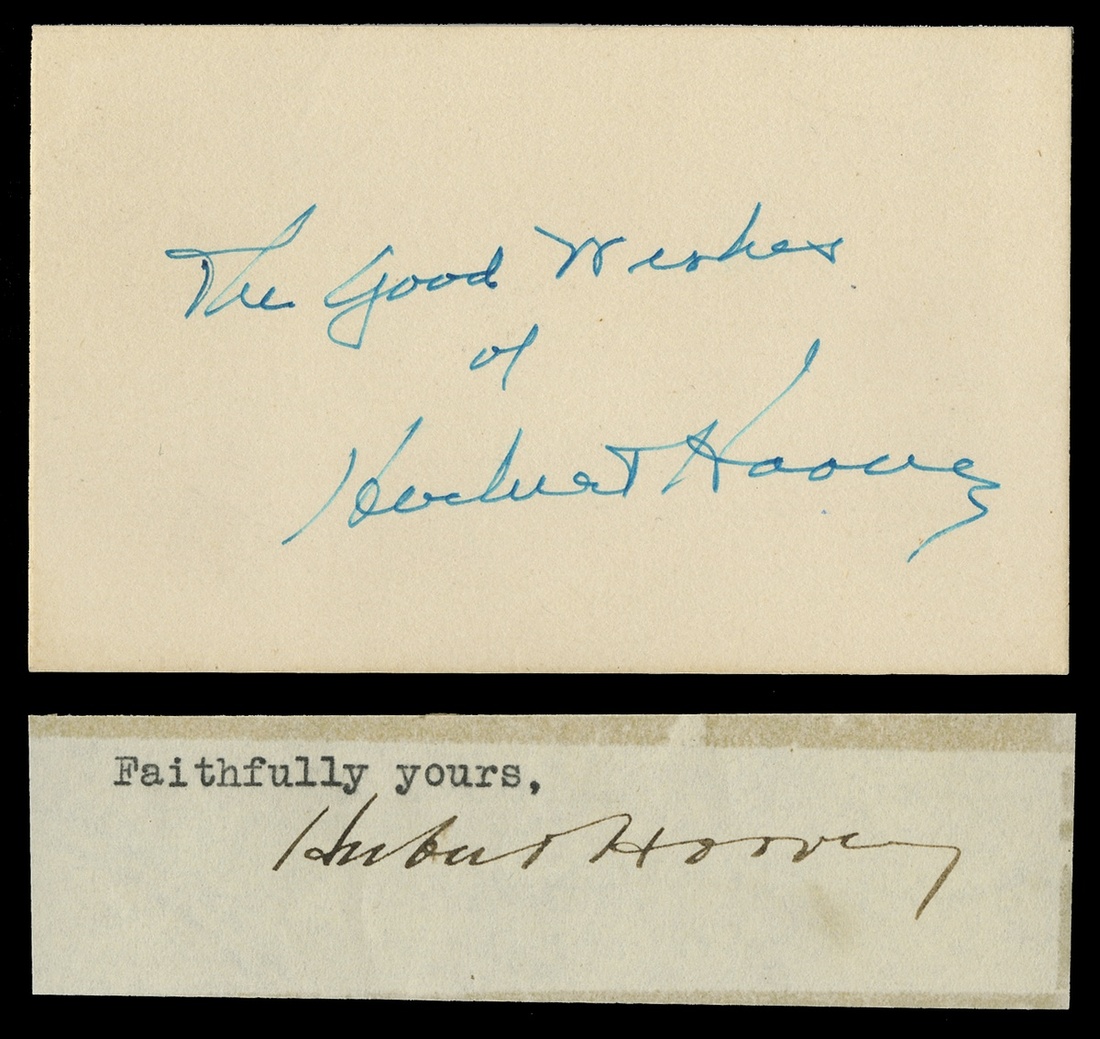 The Good Wishes
of
Herbert Hoover
Faithfully yours,
Herbert Hoover